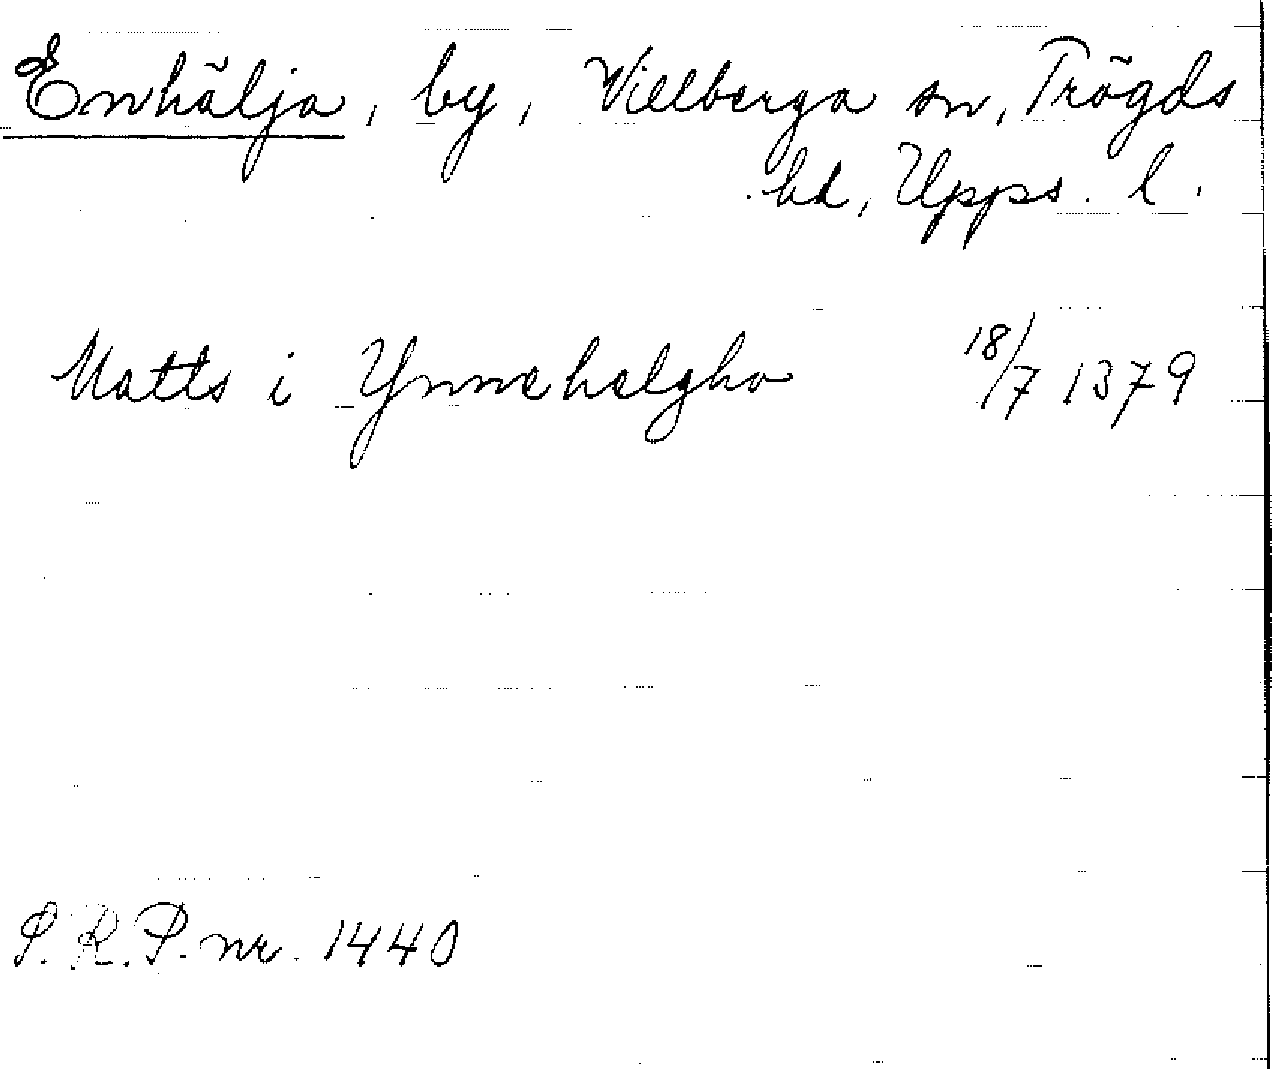 Enhälja, by, Villberga sn, Trögds
hd, Upps. l.
Matts i Ynnehelgha 18/7 1379
S.R.P. nr. 1440